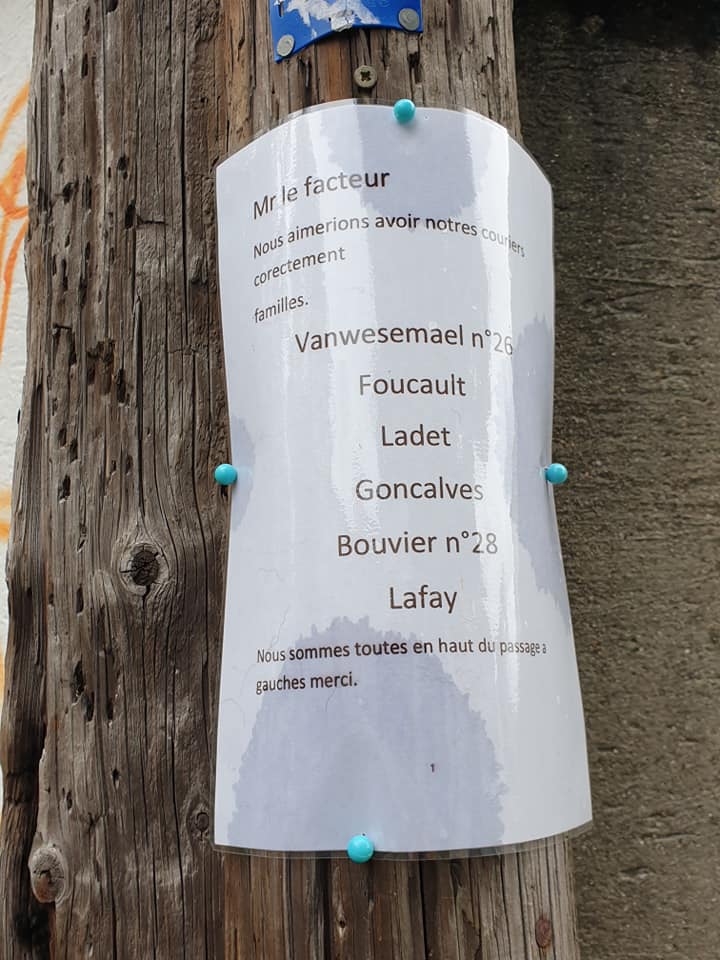 Mr le facteur
Nous aimerions avoir notres couriers
corectement
familles.
Vanwesemael n°26
Foucault
Ladet
Goncalves
Bouvier n°28
Lafay
Nous sommes toutes en haut du passage a
gauches merci.
1